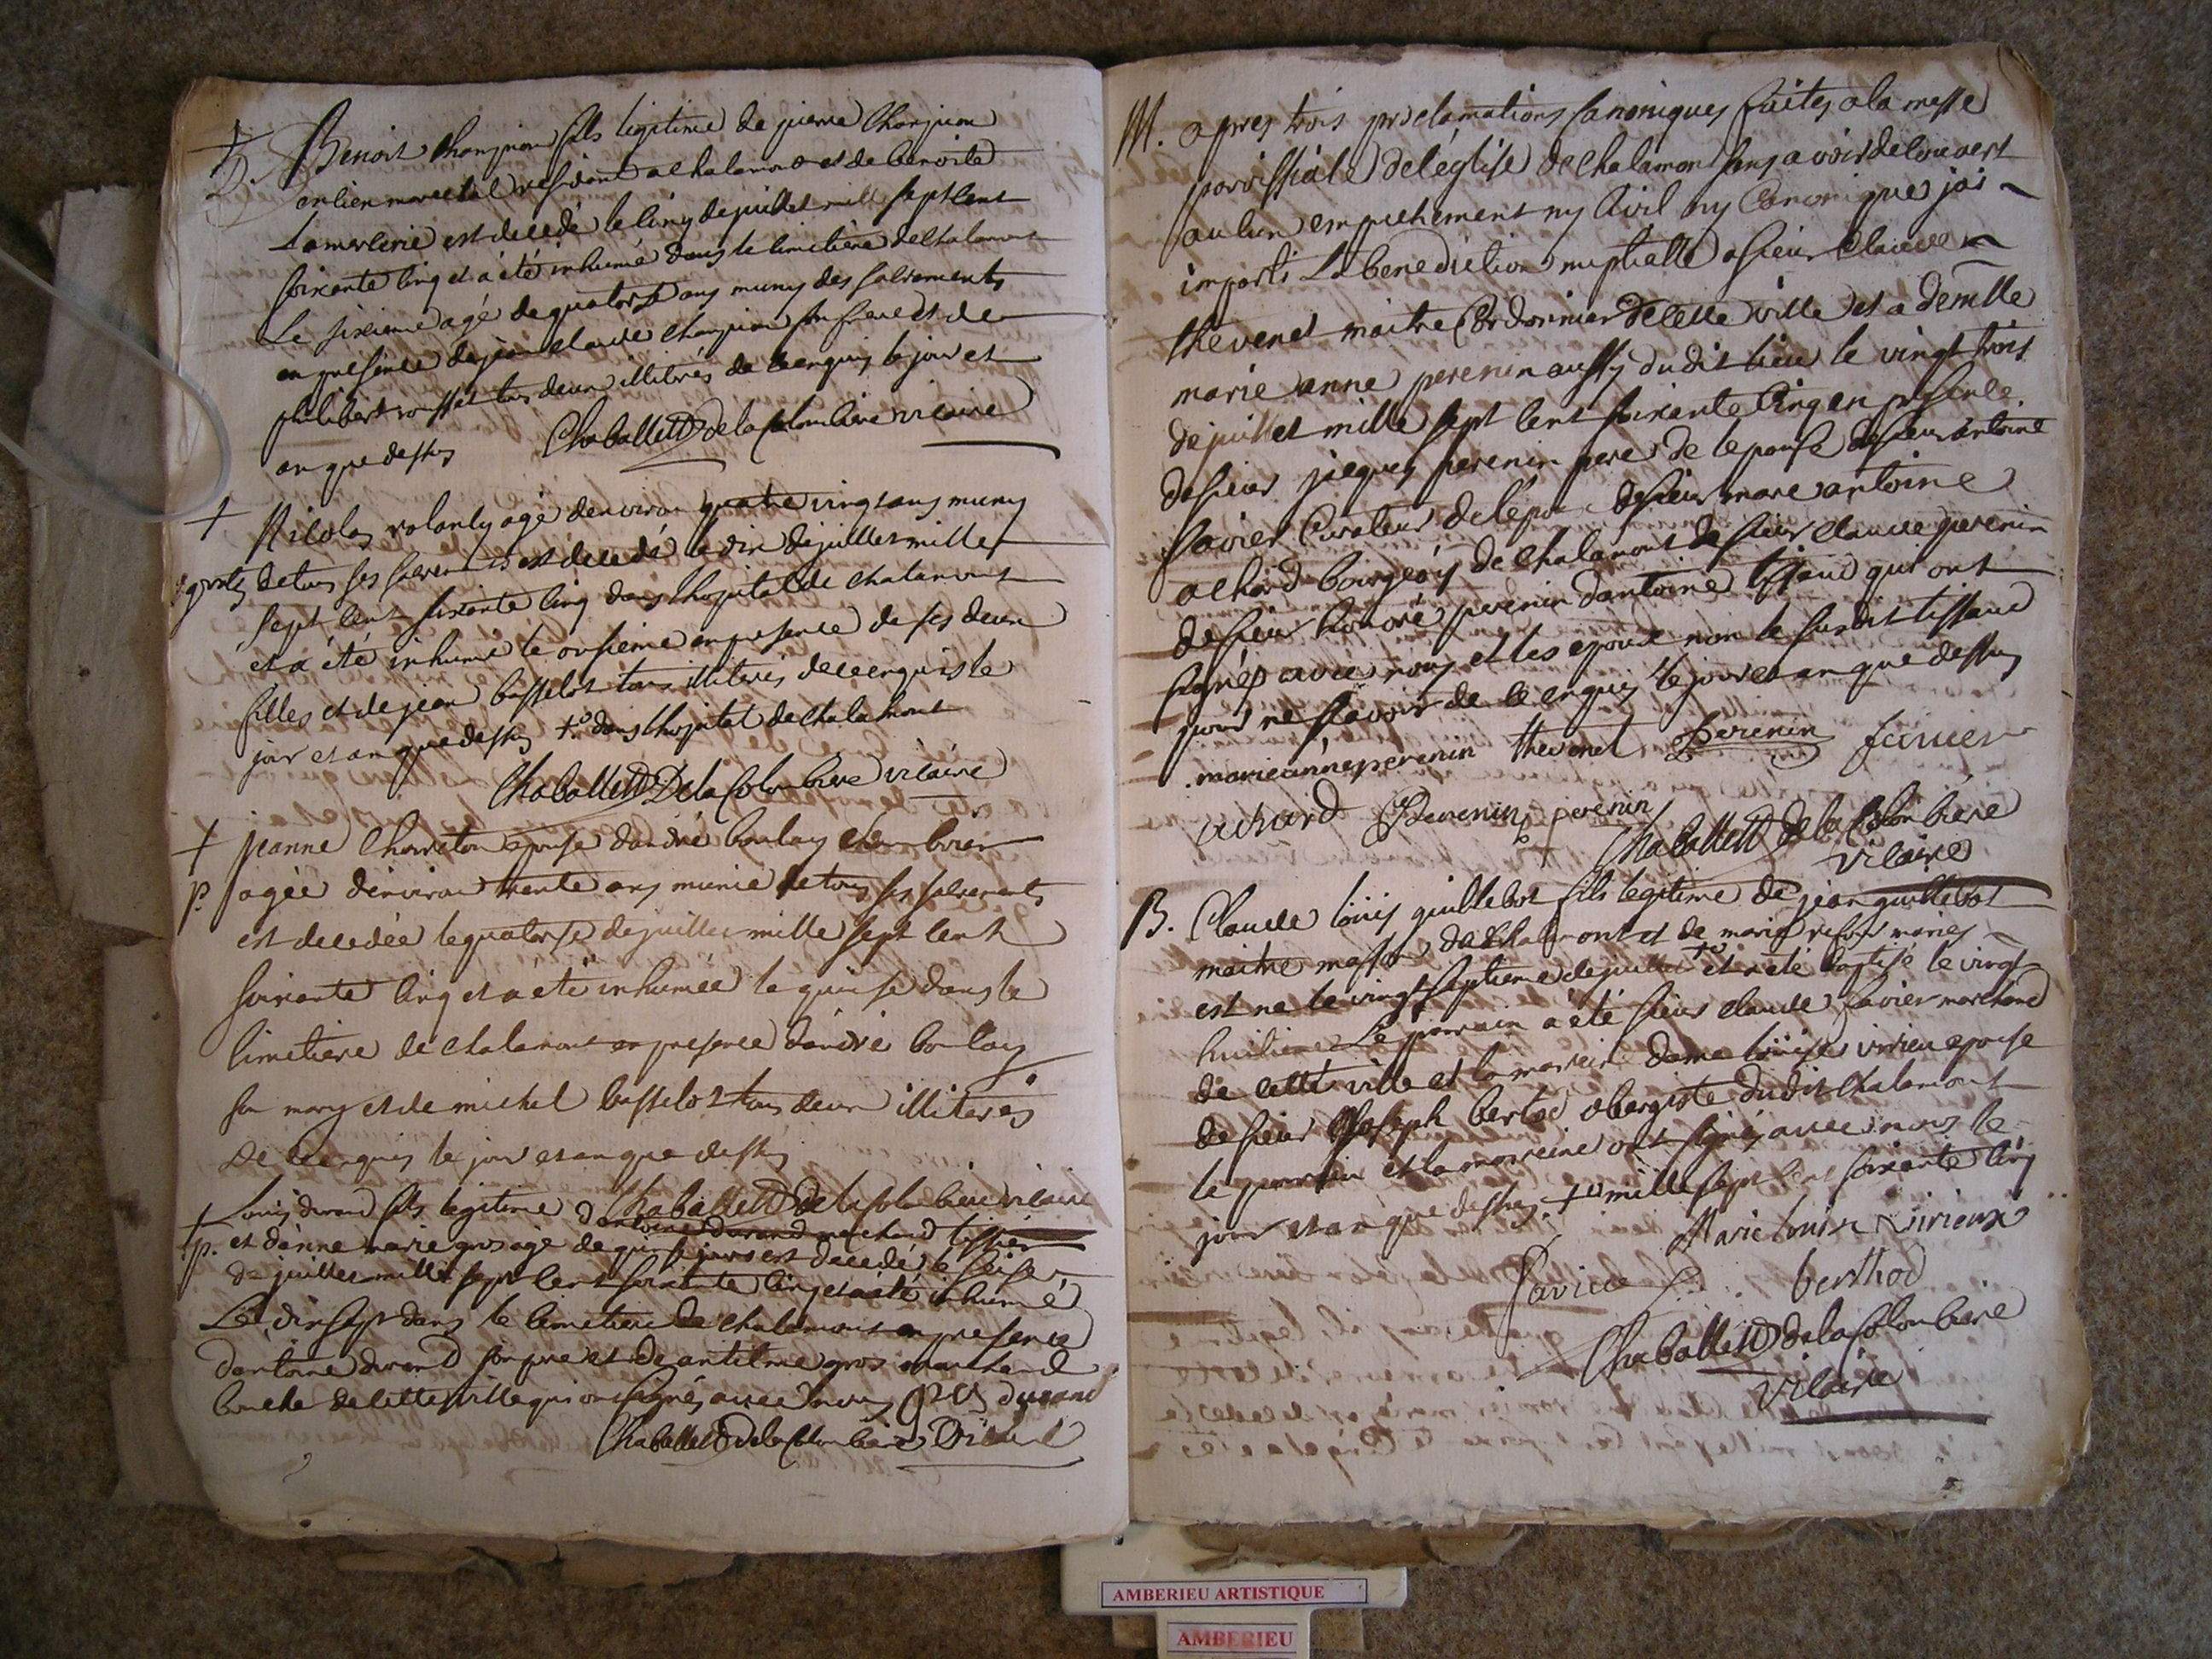 † Benoit Champion fils legitime de pierre Champion
D. ancien marechal residant a chalamont et de benoite
Lamercerie est decedé le cinq de juillet mille sept cent
soixante cinq et a été inhumé dans le cimetiere de chalamont
Le sixieme agé de quatorse ans muny des sacrements
en présence de jean claude Champion son frere et de
philibert rousset tous deux illiterés de ce enquis le jour et
an que dessus Chaballett De la Colombiere vicaire
† Nicolas rolanly agé denviron quatre vingt ans muny
de tous ses sacrements est decedé le dix de juillet mille
sept cent soixante cinq dans l'hopital de chalamont
et a été inhumé le onsieme en presence de ses deux
filles et de jean busselot tous illiterés de ce enquis le
jour et an que dessus †o dans l'hopital de chalamont
Chaballett De la Colombiere vicaire
† jeanne Charreton epouse d'andré boulay
p. agée d'environ trente ans munie de tous ses sacrements
est decedée le quatorse de juillet mille sept cent
soixante cinq et a été inhumée le quinse dans le
cimetiere de chalamont en presence d'andré boulay
son mary et de michel busselot tous deux illiterés
de ce enquis le jour et an que dessus
Chaballett de la Colombiere vicaire
† Louis durand fils legitime d'antoine durand marchand tissier
p. et d'anne marie gros agé de quinse jours est decedé le seise
de juillet mille sept cent soixante cinq et a été inhumé
Le dix sept dans le cimetiere de chalamont en presence
d'antoine durand son pere et de antelme gros marchand
bouche de cette ville qui ont signés avec nous gros durand
Chaballett de la Colombiere Vicaire
M. apres trois proclamations canoniques faites a la messe
paroissiale de l'église de chalamont sans avoir decouvert
aucun empechement ny civil ny canonique j'ai
imparti La benediction nuptialle a sieur claude
thevenet maitre Cordonnier de cette ville et a demlle
marie anne perenin aussy dudit lieu le vingt trois
de juillet mille sept cent soixante cinq en presence
de sieur jacques perenin pere de l'epouse de sieur antoine
savier Curateur de l'epoux de sieur marc antoine
achard bourgeois de chalamont de sieur claude perenin
de sieur honoré perenin d'antoine tissaud qui ont
signés avec nous et les epoux non le susdit tissaud
pour ne sçavoir de ce enquis le jour et an que dessus
marie anne perenin thevenet Perenin
achard Perenin perenin
Chaballett de la Colombiere
vicaire
B. Claude Louis guillebot fils legitime de jean guillebot
maitre masson de chalamont et de marie mariés
est ne le vingt septieme de juillet †o et a été baptisé le vingt
huitieme Le parrain a été sieur claude savier marchand
de cette ville et la marreine dame Louise virieu epouse
de sieur joseph bertod obergiste dudit chalamont
le parrain et la marreine ont signés avec nous le
jour et an que dessus. †o mille sept cent soixante cinq
Marie louise virieux
Savier berthod
Chaballett de la Colombiere
vicaire
AMBERIEU ARTISTIQUE
AMBERIEU